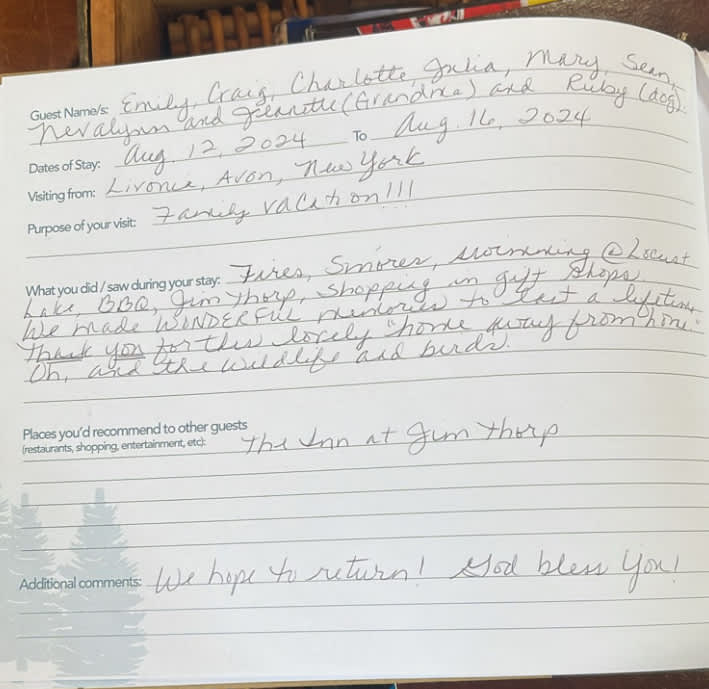 Guest Name/s: Emily, Craig, Charlotte, Julia, Mary, Sean,
Nevalynn and Jeanette (Grandma) and Ruby (dog).
Dates of Stay: Aug. 12, 2024 To Aug. 16, 2024
Visiting from: Livonia, Avon, New York
Purpose of your visit: Family vacation!!!
What you did / saw during your stay: Fires, Smores, swimming @ Locust
Lake, BBQ, Jim Thorp, shopping in gift shops
We made WONDERFUL memories to last a lifetime
Thank you for this lovely "home away from home"
Oh, and the wildlife and birds.
Places you'd recommend to other guests
(restaurants, shopping, entertainment, etc): The Inn at Jim Thorp
Additional comments: We hope to return! God bless you!